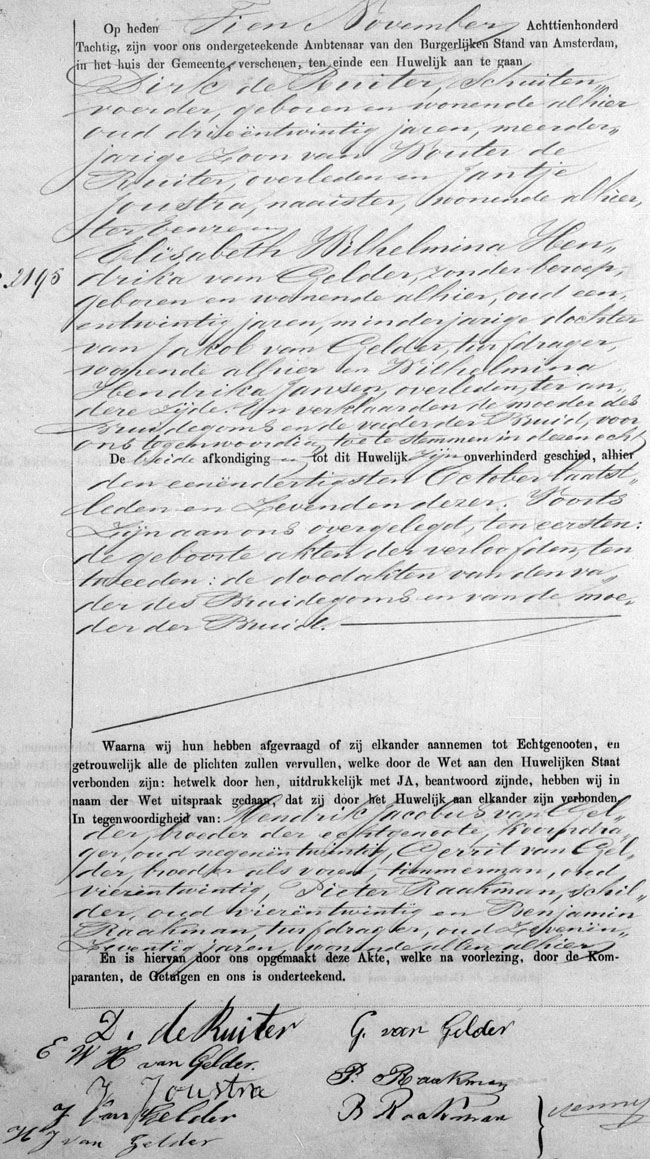 Op heden Tien November Achttienhonderd
Tachtig, zijn voor ons ondergeteekende Ambtenaar van den Burgerlijken Stand van Amsterdam,
in het huis der Gemeente, verschenen, ten einde een Huwelijk aan te gaan
Dirk de Ruiter, schuiten„
voerder, geboren en wonende alhier
oud drieëntwintig jaren, meerder„
jarige Zoon van Wouter de
Ruiter, overleden en Jantje
Joustra, naaister, wonende alhier,
ter Eenre en
Elisabeth Wilhelmina Hen„
2195
drika van Gelder, zonder beroep,
geboren en wonende alhier, oud een„
entwintig jaren, minderjarige dochter
van Jakob van Gelder, turfdrager,
wonende alhier en Wilhelmina
Hendrika Jansen, overleden, ter an„
dere zijde. En verklaarden de moeder des
Bruidegoms en de vader der Bruid, voor
ons tegenwoordig toe te stemmen in dezen echt
De beide afkondiging en tot dit Huwelijk zijn onverhinderd geschied, alhier
den eenëndertigsten October laatst„
leden en Zevenden dezer. Voorts
Zijn aan ons overgelegd, ten eersten:
de geboorte akten der verloofden, ten
tweeden: de doodakten van den va„
der des Bruidegoms en van de moe„
der der Bruid.
Waarna wij hun hebben afgevraagd of zij elkander aannemen tot Echtgenooten, en
getrouwelijk alle de plichten zullen vervullen, welke door de Wet aan den Huwelijken Staat
verbonden zijn: hetwelk door hen, uitdrukkelijk met JA, beantwoord zijnde, hebben wij in
naam der Wet uitspraak gedaan, dat zij door het Huwelijk aan elkander zijn verbonden.
In tegenwoordigheid van: Hendrik Jacobus van Gel„
der, broeder der echtgenoote, koorndra„
ger, oud negenëntwintig, Gerrit van Gel„
der, broeder als voren, timmerman, oud
vierëntwintig, Pieter Raakman, schil„
der, oud vierëntwintig en Benjamin
Raakman, turfdrager, oud Zevenën„
Zeventig jaren, wonende allen alhier
En is hiervan door ons opgemaakt deze Akte, welke na voorlezing, door de Kom-
paranten, de Getuigen en ons is onderteekend.
D. de Ruiter G. van Gelder
E W H van Gelder.
J Joustra P. Raakman
J Van Gelder B Raakman
H J van Gelder